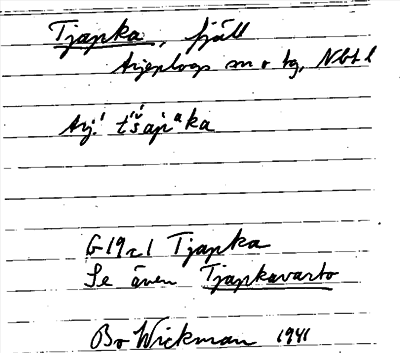 Tjapka, fjäll
Arjeplogs sn o tg, Nbt l
Arj.
G19a1 Tjapka
Se även Tjapkavarto
Bo Wickman 1941